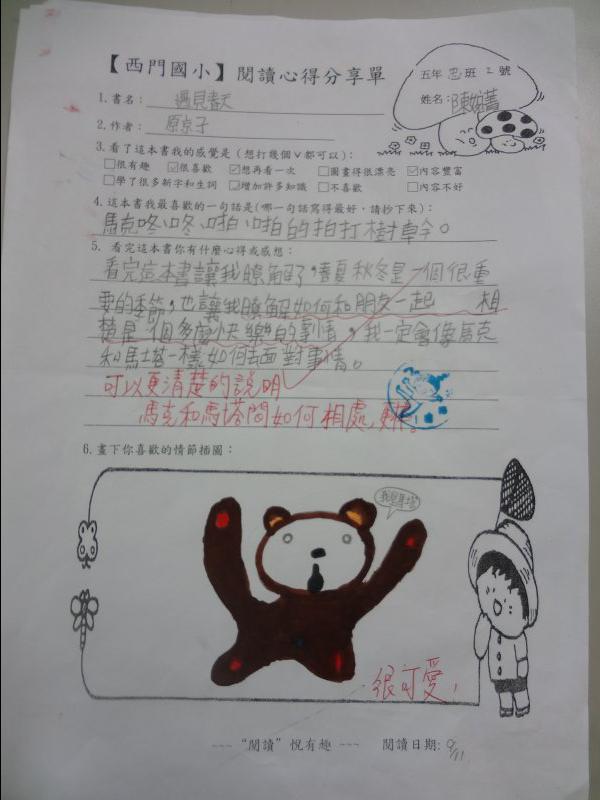 【西門國小】閱讀心得分享單
五年 忠 班 2 號
姓名：陳婉菁
1.書名：遇見春天
2.作者：原京子
3.看了這本書我的感覺是(想打幾個ˇ都可以)：
□很有趣 ☑很喜歡 ☑想再看一次 □圖畫得很漂亮 ☑內容豐富
□學了很多新字和生詞 ☑增加許多知識 □不喜歡 □內容不好
4.這本書我最喜歡的一句話是(哪一句話寫得最好，請抄下來)：
馬克咚、咚、啪、啪的拍打樹幹。
5. 看完這本書你有什麼心得或感想：
看完這本書讓我瞭解了，春夏秋冬是一個很重
要的季節，也讓我瞭解如何和朋友一起 相
處是一個多麼快樂的事情，我一定會像馬克
和馬塔一樣如何去面對事情。
可以更清楚的說明
馬克和馬塔間如何相處，更棒。
6.畫下你喜歡的情節插圖：
我是馬塔
很可愛！
--- “閱讀” 悅有趣 --- 閱讀日期：9/11